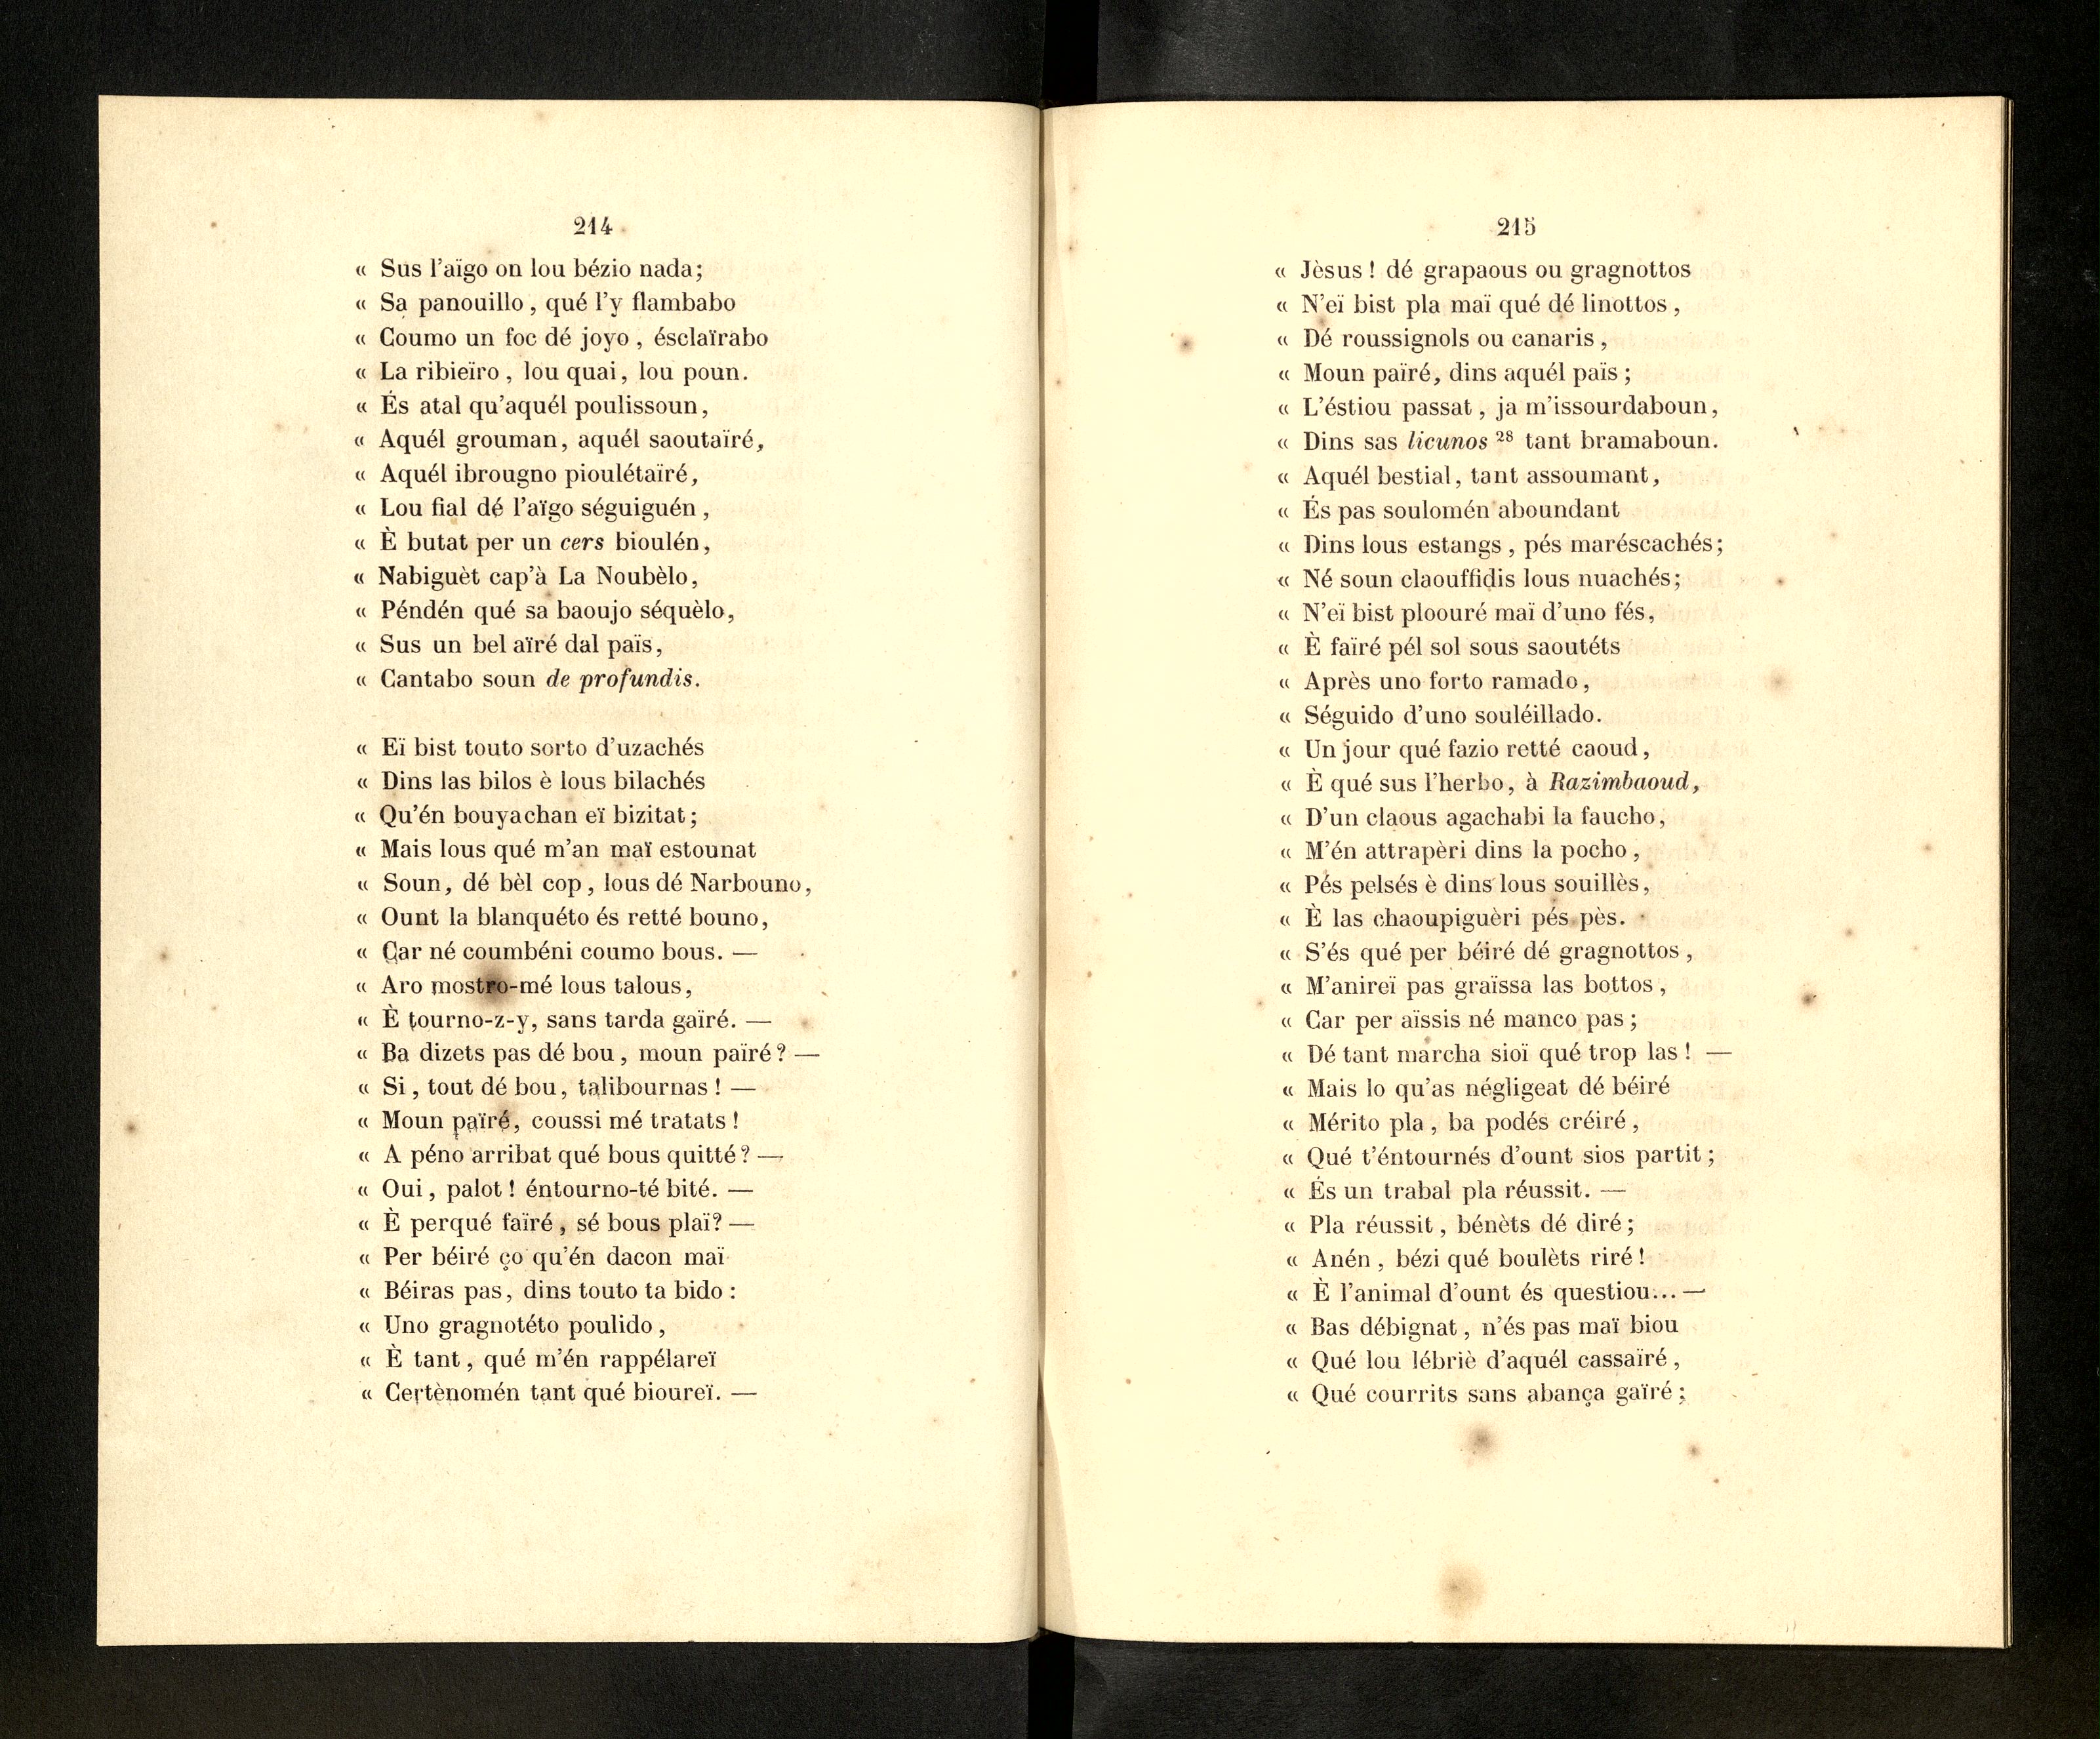 214
« Sus l'aïgo on lou bézio nada;
« Sa panouillo, qué l'y flambabo
« Coumo un foc dé joyo, ésclaïrabo
« La ribieïro, lou quai, lou poun.
« És atal qu'aquél poulissoun,
« Aquél grouman, aquél saoutaïré,
« Aquél ibrougno pioulétaïré,
« Lou fial dé l'aïgo séguiguén,
« È butat per un cers bioulén,
« Nabiguèt cap'à La Noubèlo,
« Péndén qué sa baoujo séquèlo,
« Sus un bel aïré dal païs,
« Cantabo soun de profundis.
« Eï bist touto sorto d'uzachés
« Dins las bilos è lous bilachés
« Qu'én bouyachan eï bizitat;
« Mais lous qué m'an maï estounat
« Soun, dé bèl cop, lous dé Narbouno,
« Ount la blanquéto és retté bouno,
« Car né coumbéni coumo bous. —
« Aro mostro-mé lous talous,
« È tourno-z-y, sans tarda gaïré. —
« Ba dizets pas dé bou, moun païré? —
« Si, tout dé bou, talibournas! —
« Moun païré, coussi mé tratats!
« A péno arribat qué bous quitté? —
« Oui, palot! éntourno-té bité. —
« È perqué faïré, sé bous plaï? —
« Per béiré ço qu'én dacon maï
« Béiras pas, dins touto ta bido:
« Uno gragnotéto poulido,
« È tant, qué m'én rappélareï
« Certènomén tant qué bioureï. —
215
« Jèsus! dé grapaous ou gragnottos
« N'eï bist pla maï qué dé linottos,
« Dé roussignols ou canaris,
« Moun païré, dins aquél païs;
« L'éstiou passat, ja m'issourdaboun,
« Dins sas licunos 28 tant bramaboun.
« Aquél bestial, tant assoumant,
« És pas soulomén aboundant
« Dins lous estangs, pés maréscachés;
« Né soun claouffidis lous nuachés;
« N'eï bist ploouré maï d'uno fés,
« È faïré pél sol sous saoutéts
« Après uno forto ramado,
« Séguido d'uno souléillado.
« Un jour qué fazio retté caoud,
« È qué sus l'herbo, à Razimbaoud,
« D'un claous agachabi la faucho,
« M'én attrapèri dins la pocho,
« Pés pelsés è dins lous souillès,
« È las chaoupiguèri pés pès.
« S'és qué per béiré dé gragnottos,
« M'anireï pas graïssa las bottos,
« Car per aïssis né manco pas;
« Dé tant marcha sioï qué trop las! —
« Mais lo qu'as négligeat dé béiré
« Mérito pla, ba podés créiré,
« Qué t'éntournés d'ount sios partit;
« És un trabal pla réussit. —
« Pla réussit, bénèts dé diré;
« Anén, bézi qué boulèts riré!
« È l'animal d'ount és questiou... —
« Bas débignat, n'és pas maï biou
« Qué lou lébriè d'aquél cassaïré,
« Qué courrits sans abança gaïré;